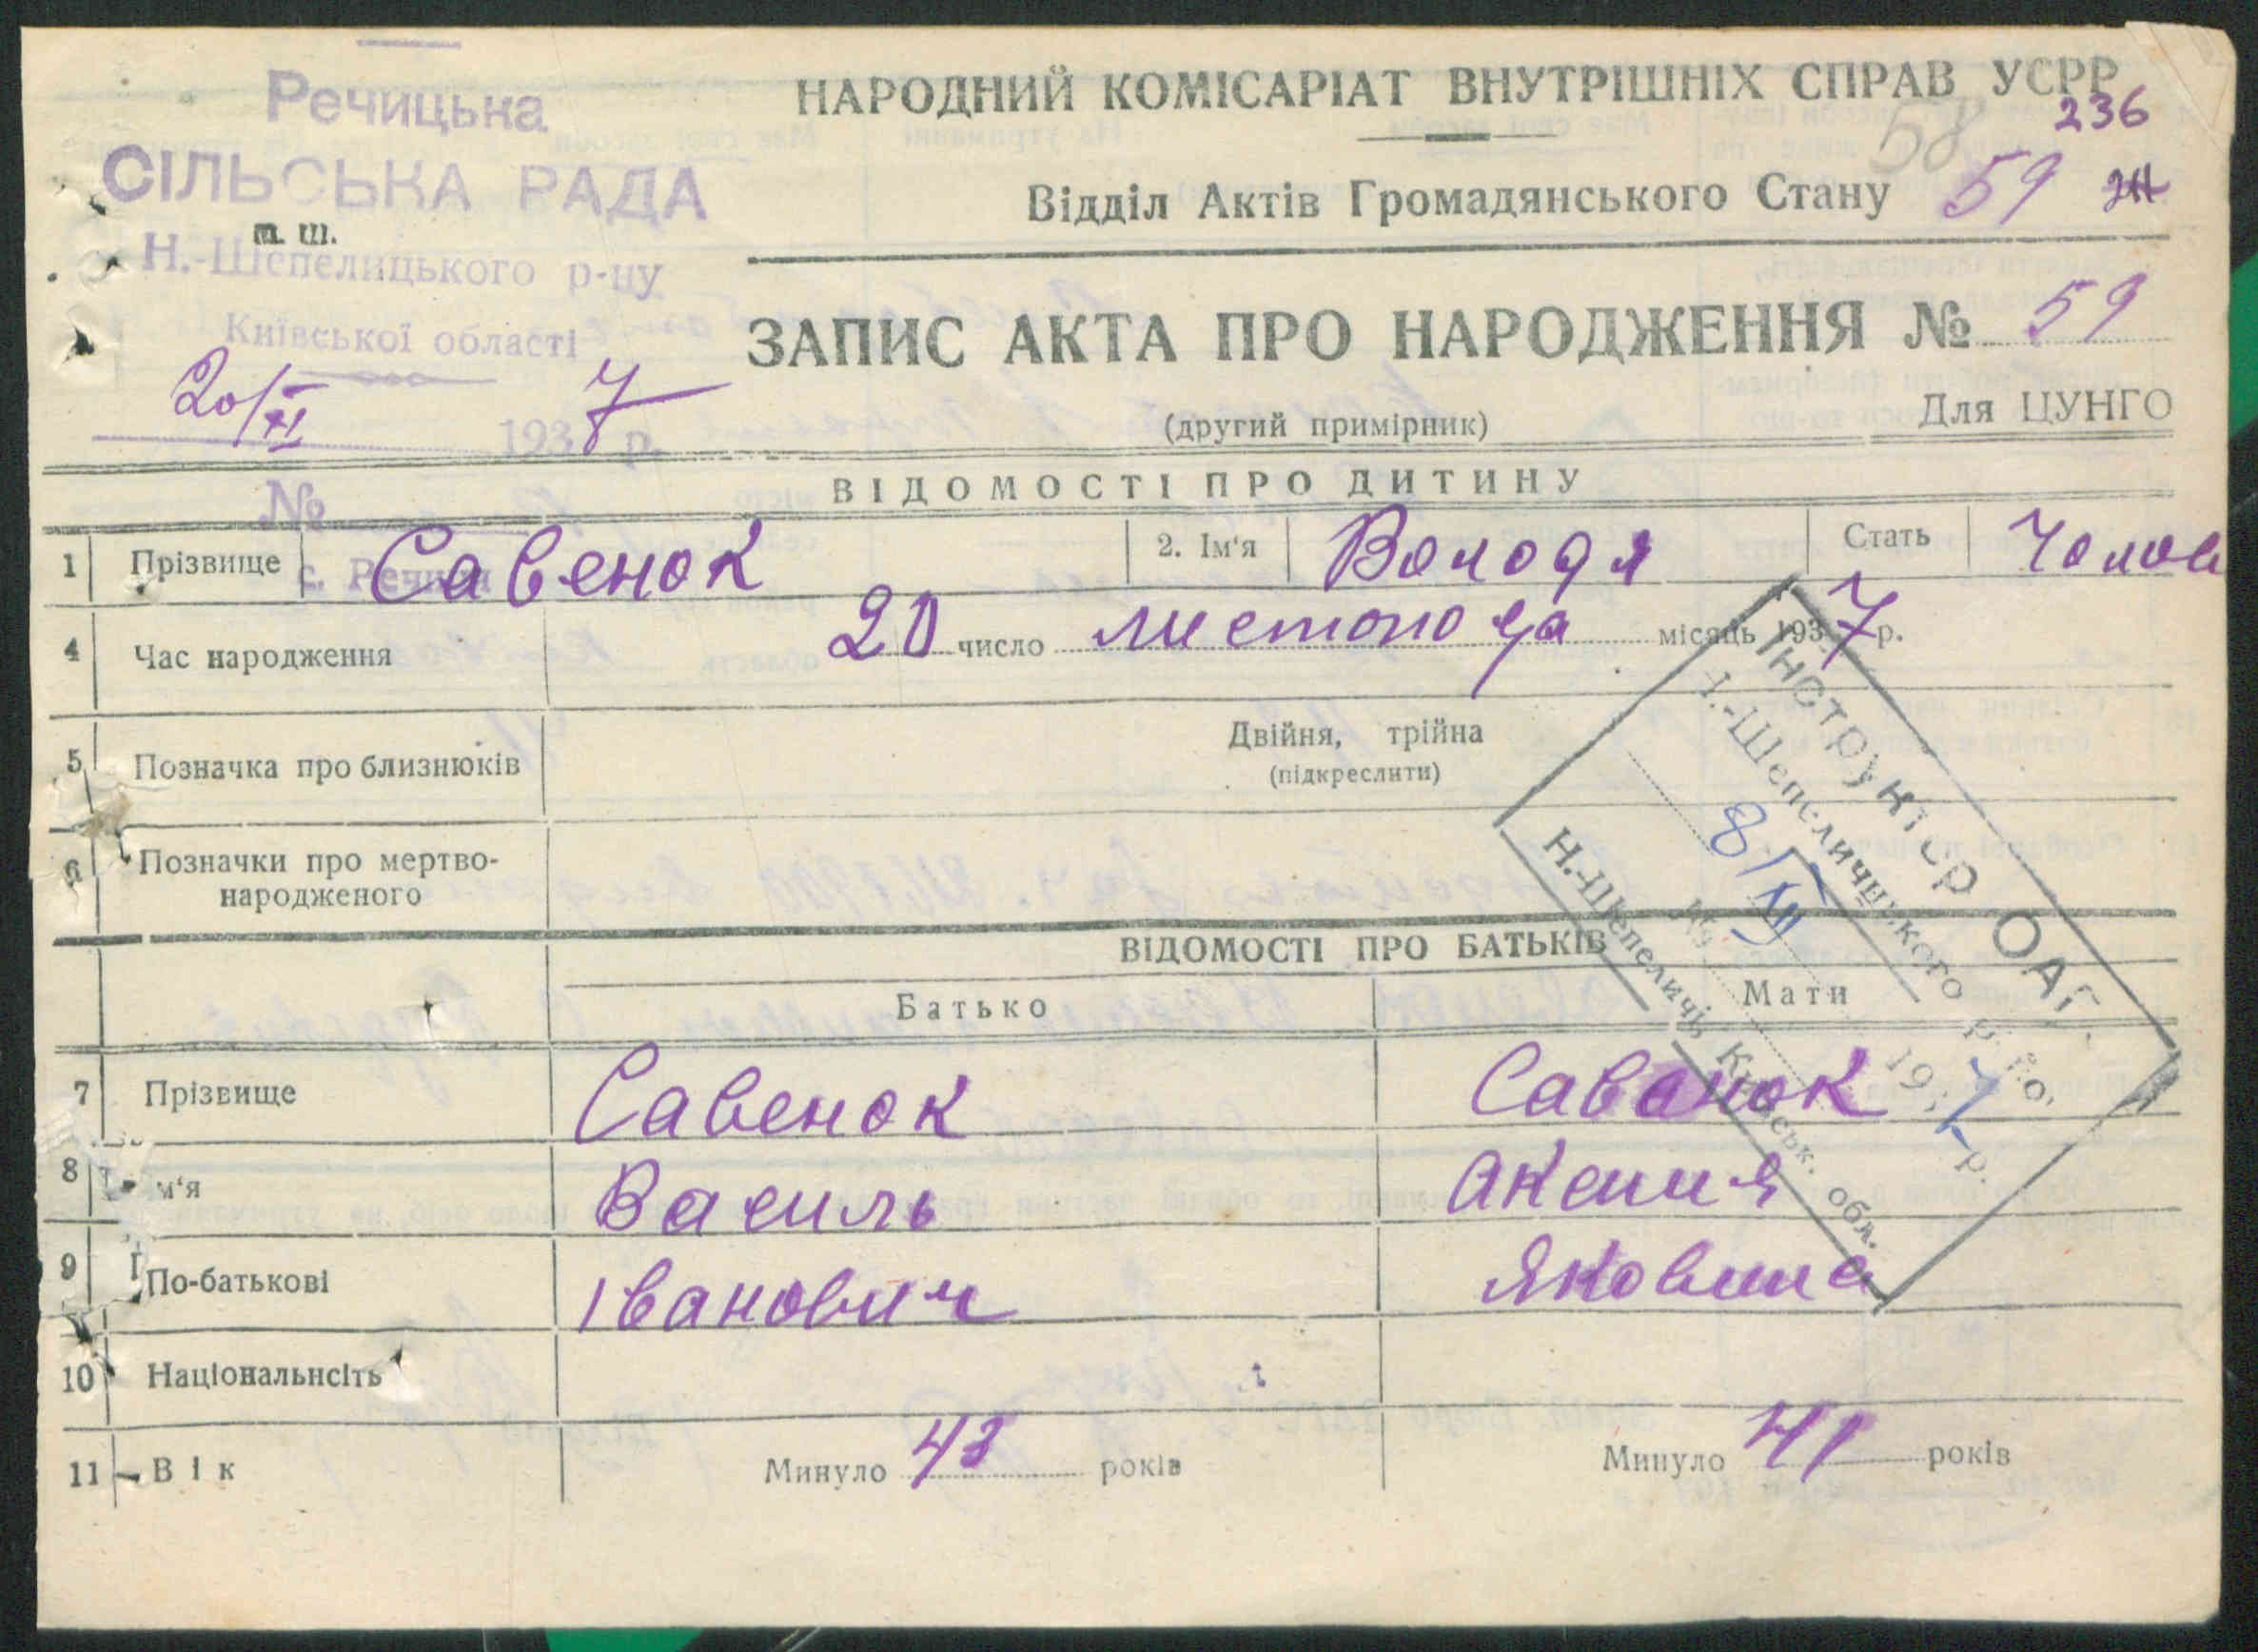 Речицька
СІЛЬСЬКА РАДА
Н.-Шепелицького р-ну
Київської області
20/XI 1937 р.
№
с. Речиця
НАРОДНИЙ КОМІСАРІАТ ВНУТРІШНІХ СПРАВ УСРР
236
58
Відділ Актів Громадянського Стану 59
ЗАПИС АКТА ПРО НАРОДЖЕННЯ № 59
(другий примірник) Для ЦУНГО
ВІДОМОСТІ ПРО ДИТИНУ
1 Прізвище Савенок 2. Ім'я Володя Стать Чолов
4 Час народження 20 число листопода місяць 1937 р.
5 Позначка про близнюків Двійня, трійна
(підкреслити)
6 Позначки про мертво-
народженого
Інструктор ОАГС
Н.-Шепеличицького р-но,
8/XII 1937 р.
№
Н.-Шепеличі, Київськ. обл.
ВІДОМОСТІ ПРО БАТЬКІВ
Батько Мати
7 Прізвище Савенок Савонок
8 м'я Василь Аксиия
9 По-батькові Іванович Яковлина
10 Національнсіть
11 Вік Минуло 43 років Минуло 41 років